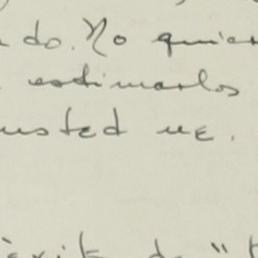 do. No quier
estimarlos
usted me.
de "